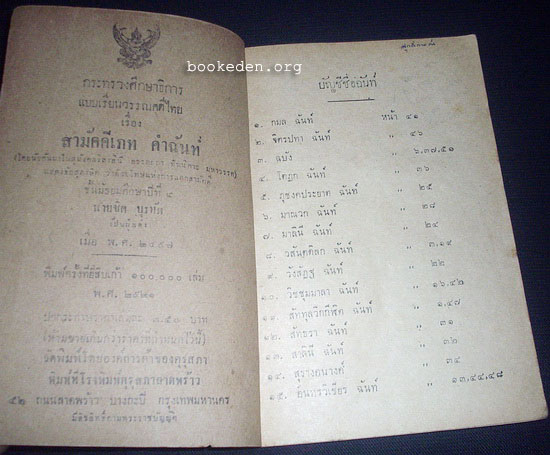 bookeden.org
กระทรวงศึกษาธิการ
แบบเรียนวรรณคดีไทย
เรื่อง
สามัคคีเภท คำฉันท์
ชั้นมัธยมศึกษาปีที่ ๔
นายชิต บุรทัต
เมื่อ พ.ศ. ๒๔๕๗
พิมพ์ครั้งที่ยี่สิบเก้า ๑๐๐,๐๐๐ เล่ม
พ.ศ. ๒๕๒๑
๓.๕๐ บาท
จัดพิมพ์โดยองค์การค้าของคุรุสภา
พิมพ์ที่โรงพิมพ์คุรุสภาลาดพร้าว
ถนนลาดพร้าว บางกะปิ กรุงเทพมหานคร
มีลิขสิทธิ์ตามพระราชบัญญัติ
บัญชีชื่อฉันท์
๑. กมล ฉันท์ หน้า ๔๑
๒. จิตรปทา ฉันท์ " ๔๖
๓. ฉบัง " ๖,๓๗,๕๑
๔. โตฎก ฉันท์ " ๓๖
๕. ภุชงคประยาต ฉันท์ " ๒๕
๖. มาณวก ฉันท์ " ๒๘
๗. มาลินี ฉันท์ " ๒๔
๘. วสันตดิลก ฉันท์ " ๓,๑๙
๙. วังสัฏฐ ฉันท์ " ๒๒
๑๐. วิชชุมมาลา ฉันท์ " ๑๖,๔๒
๑๑. สัททุลวิกกีฬิต ฉันท์ " ๑,๔๗
๑๒. สัทธรา ฉันท์ " ๓๑
๑๓. สาลินี ฉันท์ " ๓๒
๑๔. สุรางคนางค์ " ๓๔
๑๕. อินทรวิเชียร ฉันท์ " ๑๓,๔๔,๔๘